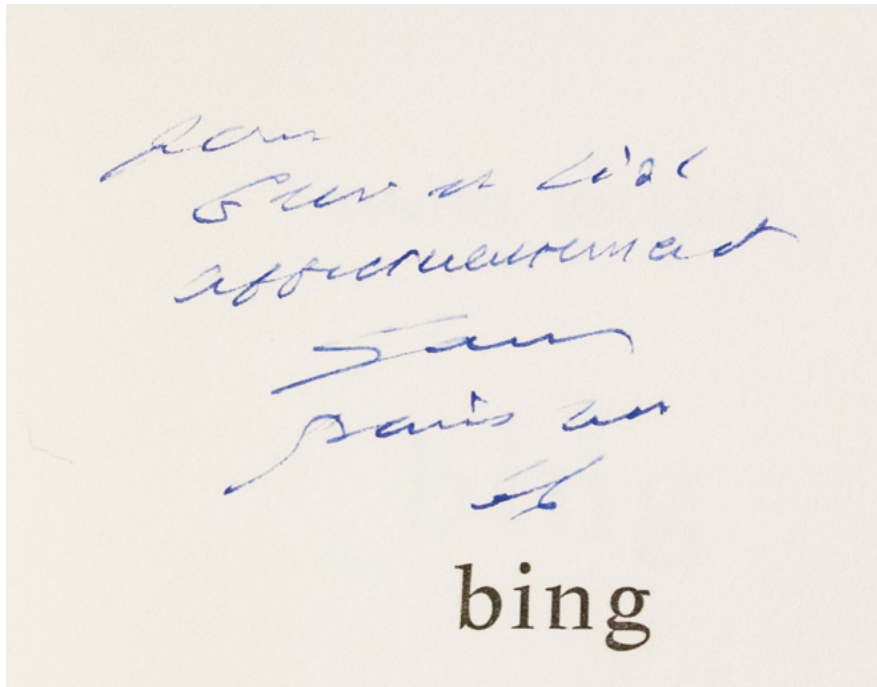 pour
Geer et Lisl
affectueusement
Sam
Paris
66
bing